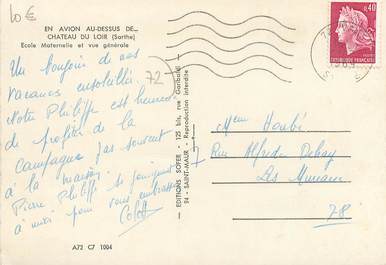 10 €
EN AVION AU-DESSUS DE...
CHATEAU DU LOIR (Sarthe)
Ecole Maternelle et vue générale
0,40
REPUBLIQUE FRANÇAISE
Un bonjour de nos
vacances ensoleillées
Notre Philippe est heureux
de profiter de la
campagne
à la maison.
Pierre Philippe se joignent
à moi pour vous embrasser
72
EDITIONS SOFER - 125 bis, rue Garibaldi
94 - SAINT-MAUR - Reproduction interdite
Rue Alfred
Les
78
A72 C7 1004